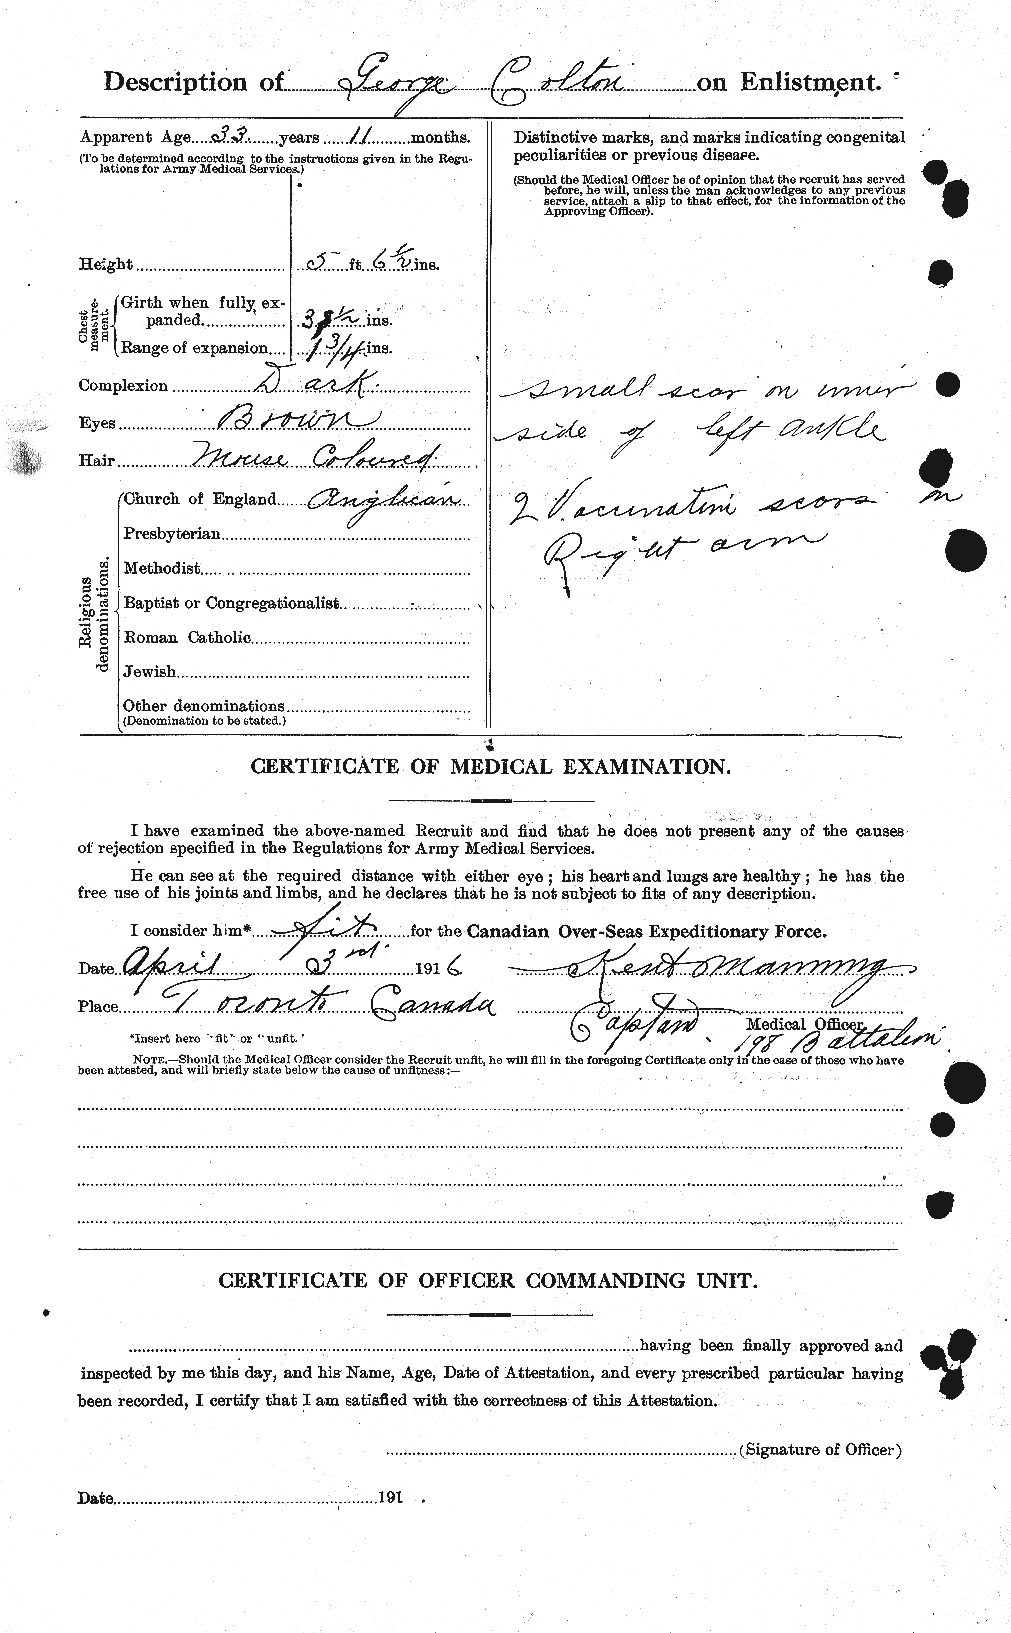 Description of George Colton on Enlistment.
Apparent Age 33 years 11 months.
(To be determined according to the instructions given in the Regu-
lations for Army Medical Services.)
Height 5 ft. 6 1/2 ins.
Chest measure-
ment.
Girth when fully ex-
panded 3 1/2 ins.
Range of expansion 1 3/4 ins.
Complexion Dark
Eyes Brown
Hair Mouse Coloured
Religious
denominations.
Church of England Anglican
Presbyterian
Methodist
Baptist or Congregationalist
Roman Catholic
Jewish
Other denominations
(Denomination to be stated.)
Distinctive marks, and marks indicating congenital
peculiarities or previous disease.
(Should the Medical Officer be of opinion that the recruit has served
before, he will, unless the man acknowledges to any previous
service, attach a slip to that effect, for the information of the
Approving Officer).
small scar on inner
side of left ankle
2 Vaccination scars on
Right arm
CERTIFICATE OF MEDICAL EXAMINATION.
I have examined the above-named Recruit and find that he does not present any of the causes
of rejection specified in the Regulations for Army Medical Services.
He can see at the required distance with either eye; his heart and lungs are healthy; he has the
free use of his joints and limbs, and he declares that he is not subject to fits of any description.
I consider him* fit for the Canadian Over-Seas Expeditionary Force.
Date April 3rd 1916 Kent Manning
Place Toronto Canada
Captain Medical Officer.
198 Battalion
*Insert here "fit" or "unfit."
NOTE.—Should the Medical Officer consider the Recruit unfit, he will fill in the foregoing Certificate only in the case of those who have
been attested, and will briefly state below the cause of unfitness:—
CERTIFICATE OF OFFICER COMMANDING UNIT.
having been finally approved and
inspected by me this day, and his Name, Age, Date of Attestation, and every prescribed particular having
been recorded, I certify that I am satisfied with the correctness of this Attestation.
(Signature of Officer)
Date 191 .